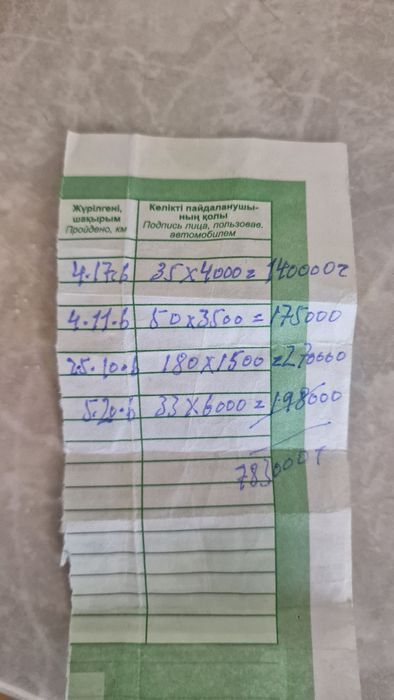 Жүрілгені,
шақырым
Пройдено, км
Көлікті пайдаланушы-
ның қолы
Подпись лица, пользовав.
автомобилем
4.17.6 35 x 4000 = 140000т
4.11.6 50 x 3500 = 175000
25.10.6 180 x 1500 = 270000
5.20.6 33 x 6000 = 198000
783000т